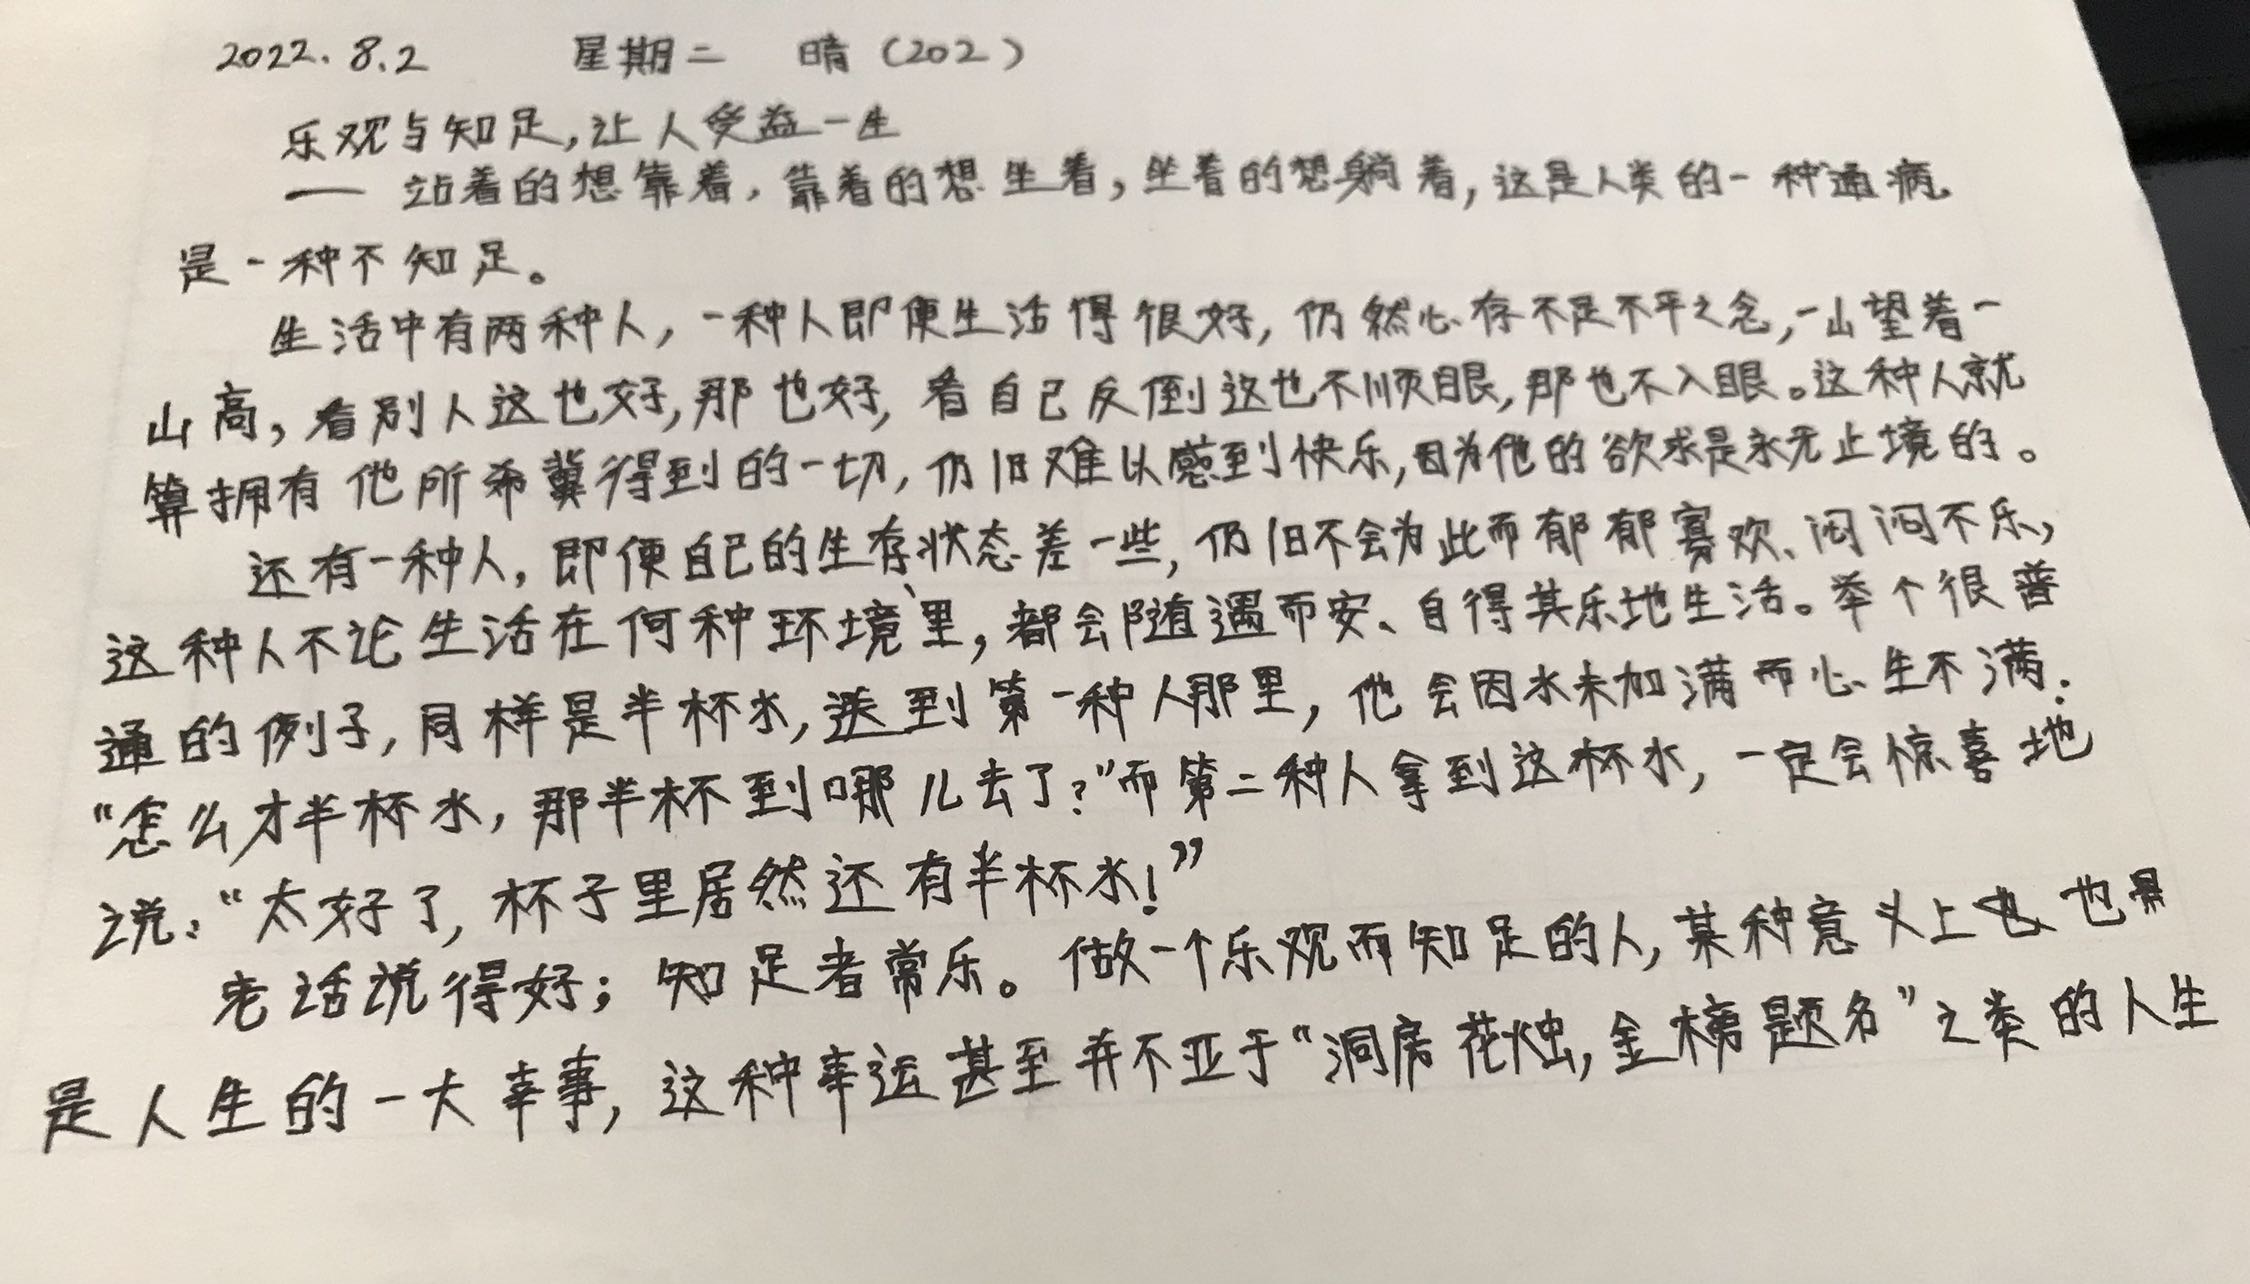 2022.8.2 星期二 晴(202)
乐观与知足,让人受益一生
—— 站着的想靠着,靠着的想坐着,坐着的想躺着,这是人类的一种通病,
是一种不知足。
生活中有两种人,一种人即便生活得很好,仍然心存不足不平之念,一山望着一
山高,看别人这也好,那也好,看自己反倒这也不顺眼,那也不入眼。这种人就
算拥有他所希冀得到的一切,仍旧难以感到快乐,因为他的欲求是永无止境的。
还有一种人,即便自己的生存状态差一些,仍旧不会为此而郁郁寡欢、闷闷不乐,
这种人不论生活在何种环境里,都会随遇而安、自得其乐地生活。举个很普
通的例子,同样是半杯水,送到第一种人那里,他会因水未加满而心生不满:
“怎么才半杯水,那半杯到哪儿去了?”而第二种人拿到这杯水,一定会惊喜地
说:“太好了,杯子里居然还有半杯水!”
老话说得好;知足者常乐。做一个乐观而知足的人,某种意义上也
是人生的一大幸事,这种幸运甚至并不亚于“洞房花烛,金榜题名”之类的人生